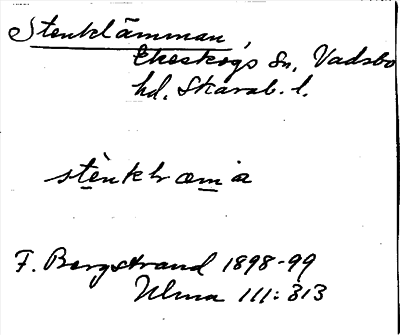 Stenklämman,
Ekeskogs Sn, Vadsbo
hd. Skarab. l.
F. Bergstrand 1898-99
Ulma 111:313